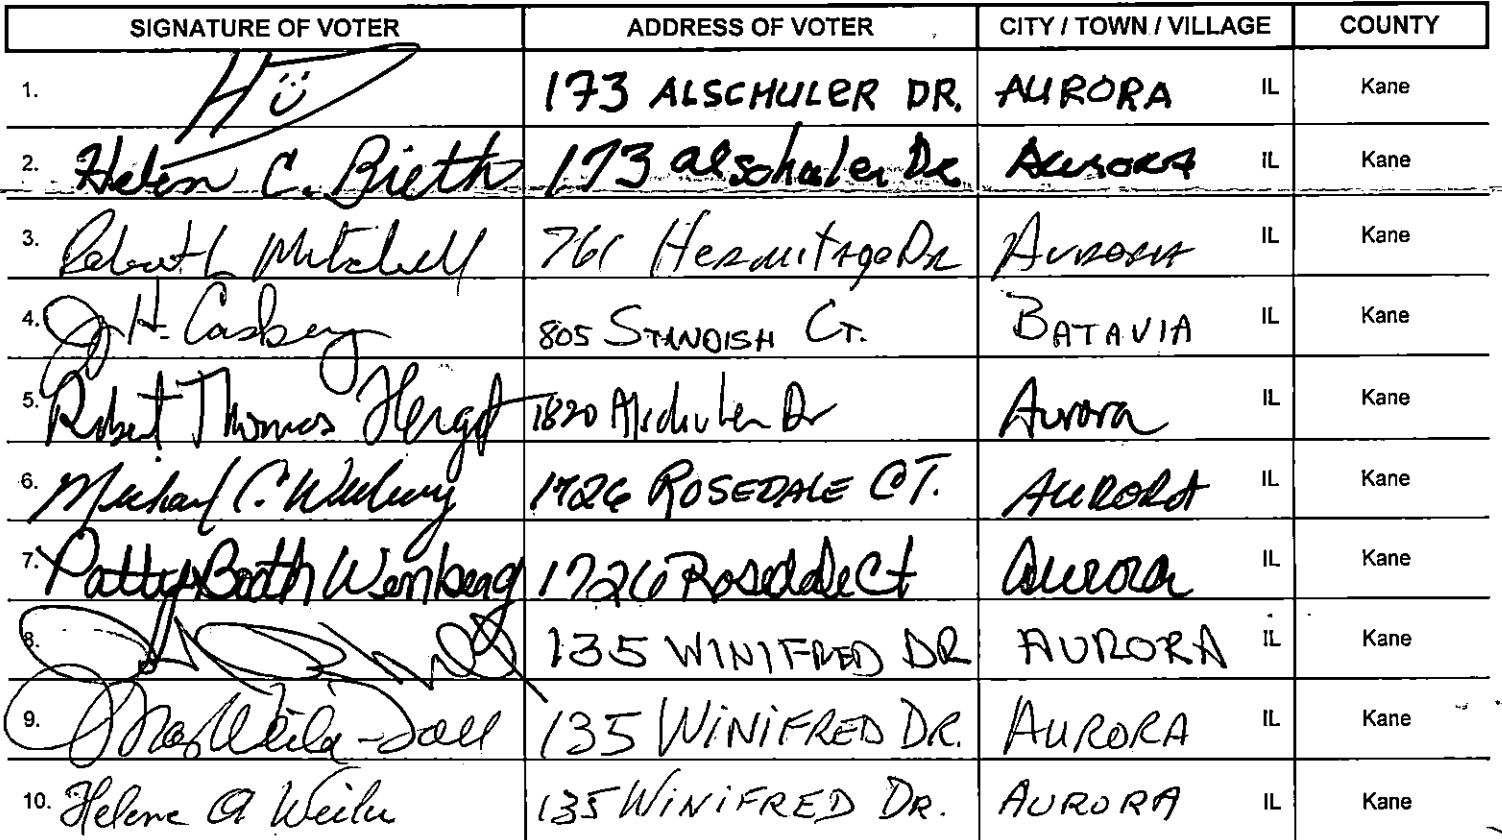 SIGNATURE OF VOTER ADDRESS OF VOTER CITY / TOWN / VILLAGE COUNTY
1. 173 ALSCHULER DR. AURORA IL Kane
2. Helen C. Bieth 173 alschuler Dr AURORA IL Kane
3. Robert L Mitchell 761 Hermitage Dr AURORA IL Kane
4. H. Casberg 805 STANDISH CT. BATAVIA IL Kane
5. Robert Thomas Hergot 1820 Alschuler Dr Aurora IL Kane
6. Michael C. 1726 ROSEDALE CT. AURORA IL Kane
7. Patty Booth Weinberg 1726 Rosedale Ct aurora IL Kane
8. 135 WINIFRED DR AURORA IL Kane
9. 135 WINIFRED DR. AURORA IL Kane
10. Helene A Weiler 135 WINIFRED DR. AURORA IL Kane